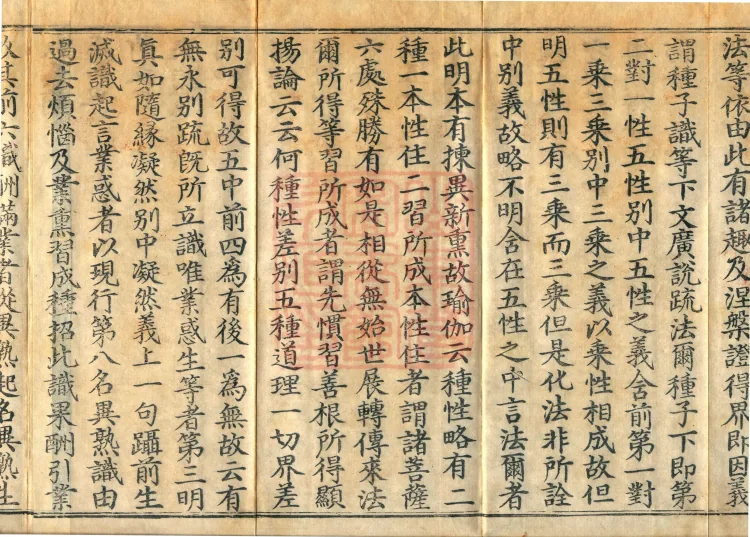 法等依由此有諸趣及涅槃證得界即因義
謂種子識等下文廣說疏法爾種子下即第
二對一性五性別中五性之義含前第一對
一乘三乘別中三乘之義以乘性相成故但
明五性則有三乘而三乘但是化法非所詮
中別義故略不明含在五性之中言法爾者
此明本有揀異新熏故瑜伽云種性略有二
種一本性住二習所成本性住者謂諸菩薩
六處殊勝有如是相從無始世展轉傳來法
爾所得等習所成者謂先慣習善根所得顯
揚論云云何種性差別五種道理一切界差
別可得故五中前四為有後一為無故云有
無永別疏既所立識唯業惑生等者第三明
真如隨緣凝然別中凝然義上一句躡前生
滅識起言業惑者以現行第八名異熟識由
過去煩惱及業熏習成種招此識果酬引業
其前六識酬滿業者從異熟起名異熟生